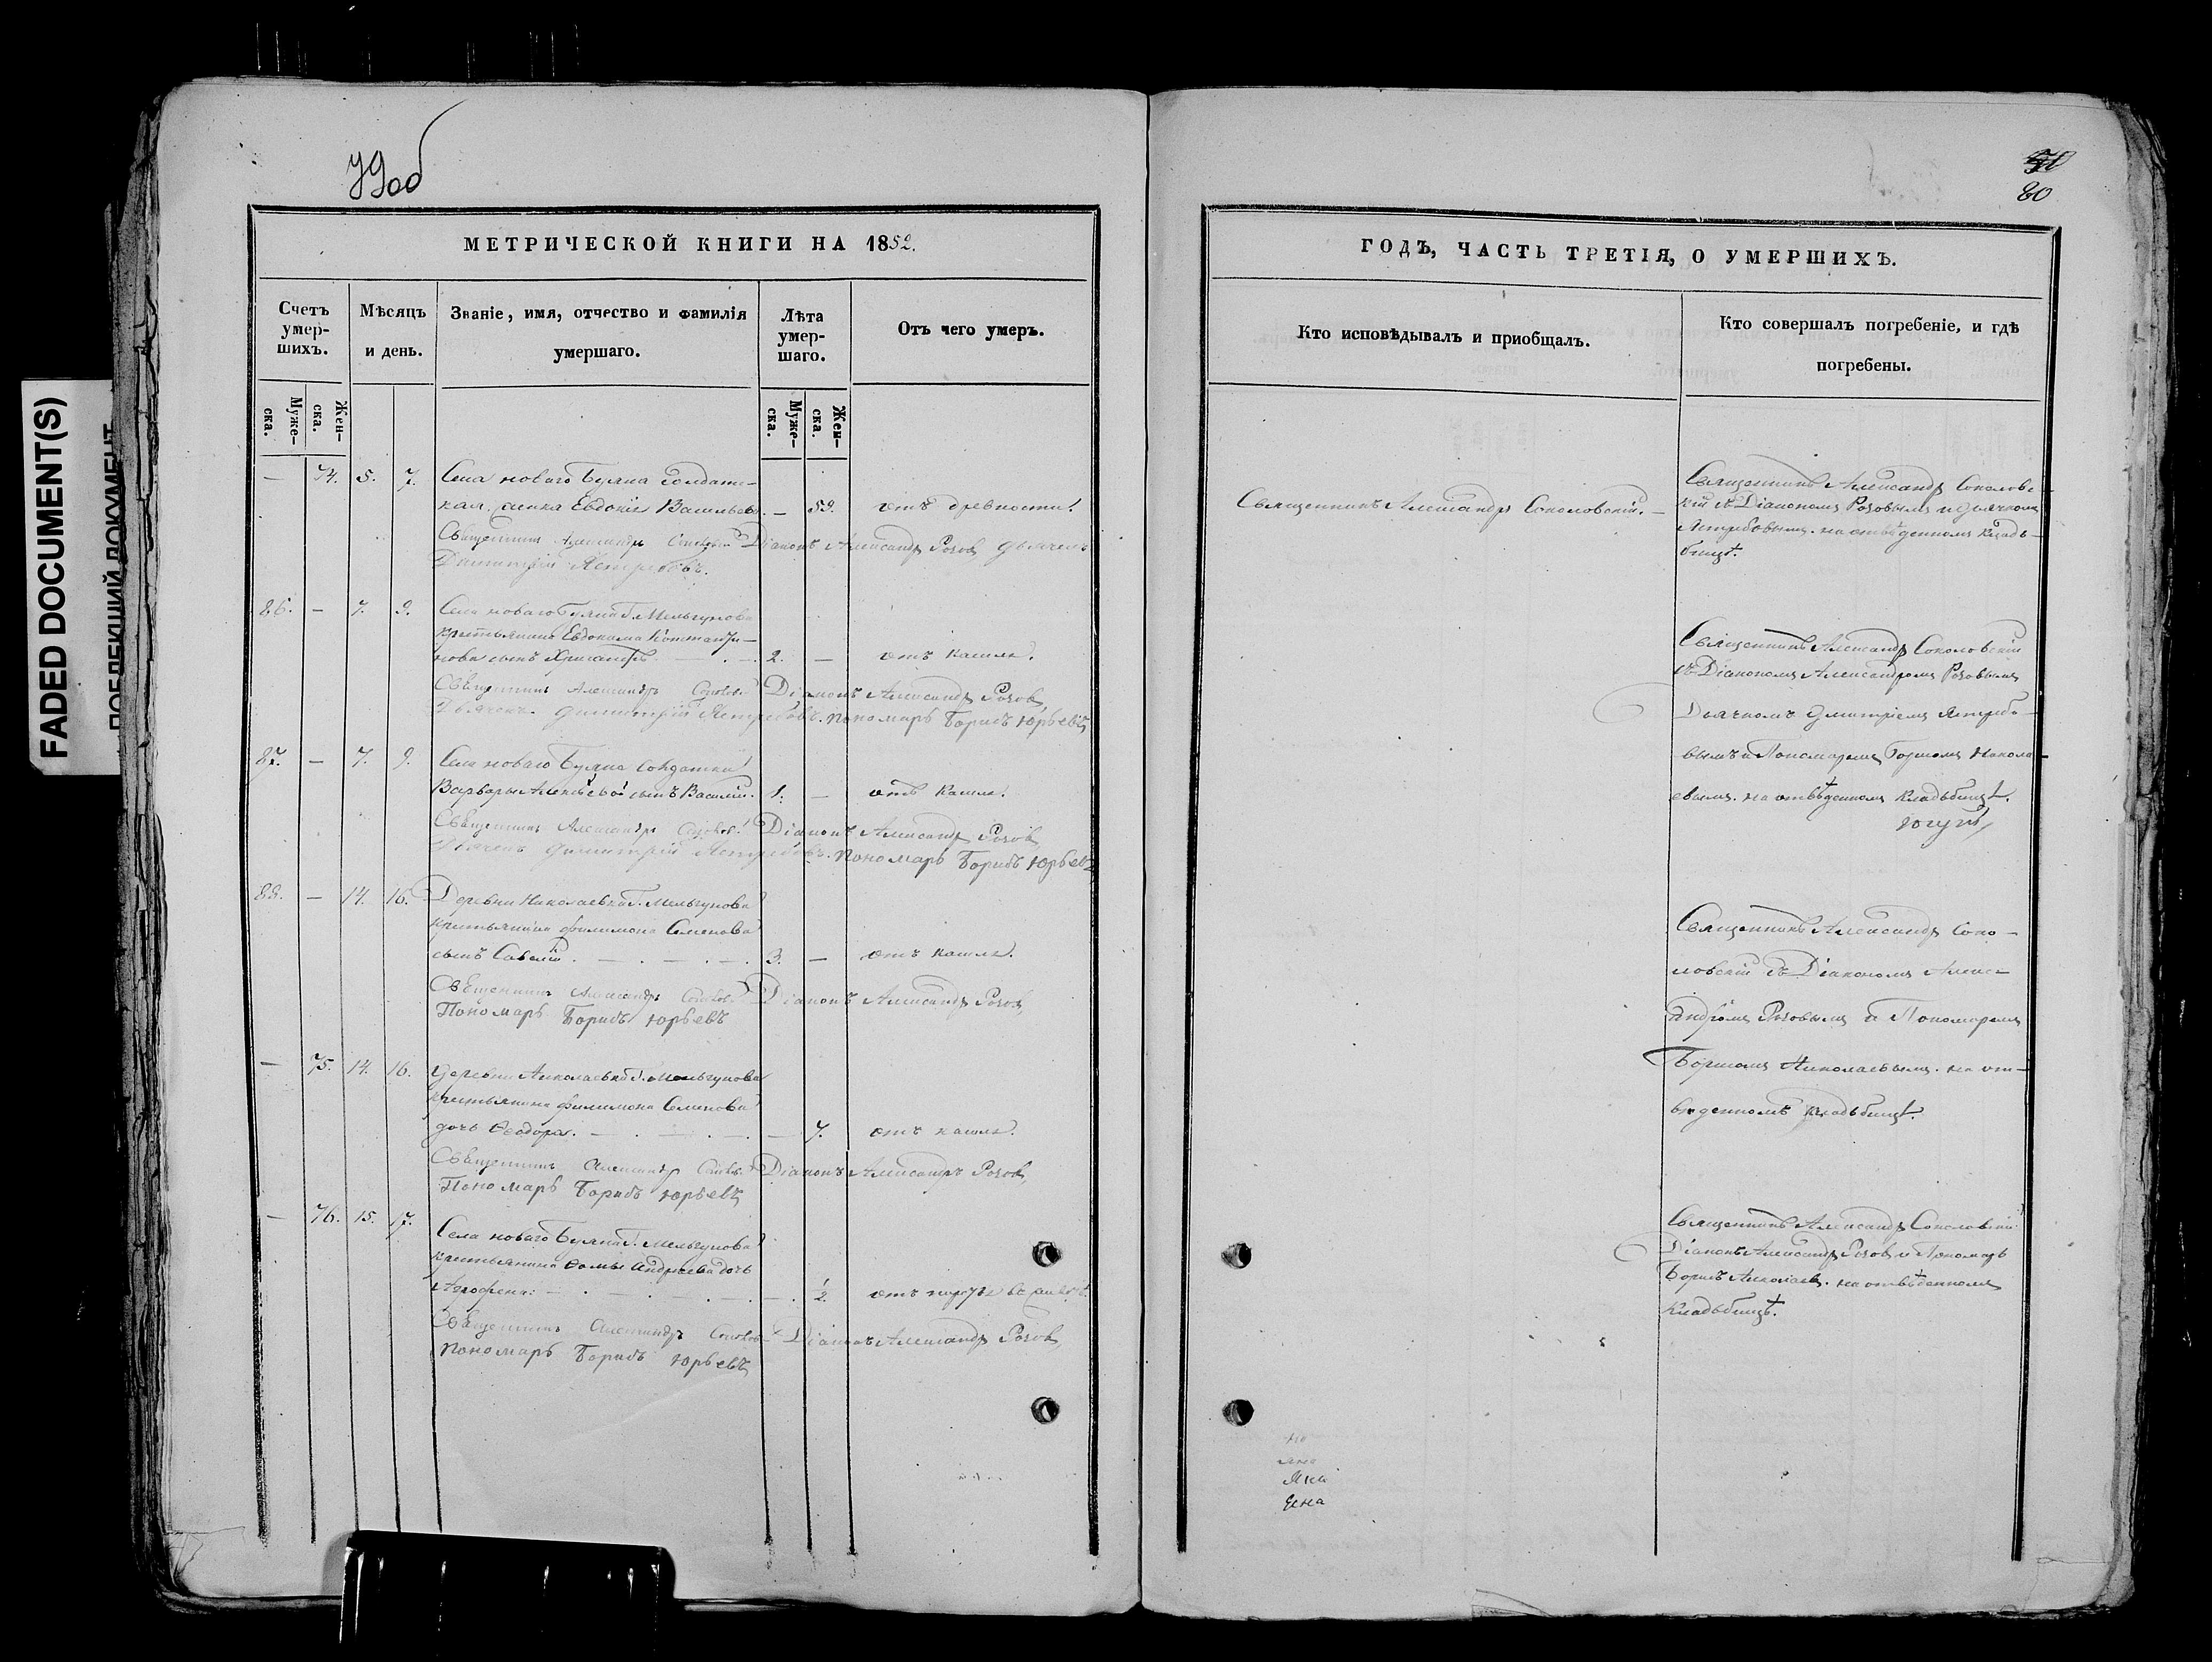 79об
МЕТРИЧЕСКОЙ КНИГИ НА 1852.
Счетъ умер-шихъ.
Муже-ска.
Жен-ска.
Мѣсяцъ и день.
Званіе, имя, отчество и фамилія
умершаго.
Лѣта умер-шаго.
Муже-ска.
Жен-ска.
Отъ чего умеръ.
— 74. 5. 7. Села новаго Буяна солдатс-
кая Евдокія Васильева — 59. отъ древности
Священникъ Александръ Діаконъ Александръ Розовъ Дьячекъ
Димитрій Ястребовъ.
86. — 7. 9. Села новаго Буяна Г. Мельгунова
крестьянина Евдокима Константи-
нова сынъ Хрисанфъ 2. — отъ кашля.
Священникъ Александръ Діаконъ Александръ Розовъ
Дьячекъ Димитрій Ястребовъ. Пономарь Борисъ Юрьевъ
87. — 7. 9. Села новаго Буяна солдатки
Варвары Алексѣевой сынъ Василій. 1. — отъ кашля.
Священникъ Александръ Діаконъ Александръ Розовъ
Дьячекъ Димитрій Ястребовъ. Пономарь Борисъ Юрьевъ
88. — 14. 16. Деревни Николаевки Г. Мельгунова
крестьянина Филимона Семенова
сынъ Савелій 3. — отъ кашля.
Священникъ Александръ Діаконъ Александръ Розовъ
Пономарь Борисъ Юрьевъ
— 75. 14. 16. Деревни Николаевки Г. Мельгунова
крестьянина Филимона Семенова
дочь Ѳеодора. — 7. отъ кашля.
Священникъ Александръ Діаконъ Александръ Розовъ
Пономарь Борисъ Юрьевъ
— 76. 15. 17. Села новаго Буяна Г. Мельгунова
крестьянина Ѳомы Андреева дочь
Агрофена: — отъ
Священникъ Александръ Діаконъ Александръ Розовъ
Пономарь Борисъ Юрьевъ
80
ГОДЪ, ЧАСТЬ ТРЕТІЯ, О УМЕРШИХЪ.
Кто исповѣдывалъ и приобщалъ.
Кто совершалъ погребеніе, и гдѣ
погребены.
Священникъ Александръ Соколовскій.
Священникъ Александръ Соколовс-
кій съ Діакономъ Розовымъ и дьячкомъ
Ястребовымъ. на отвѣденномъ кладъ-
бищѣ.
Священникъ Александръ Соколовскій
съ Діакономъ Александромъ Розовымъ
Дьячкомъ Димитріемъ Ястребо-
вымъ и Пономаремъ Борисомъ Никола-
евымъ. на отвѣденномъ кладьбищѣ.
Священникъ Александръ Соко-
ловскій съ Діакономъ Алекса-
ндромъ Розовымъ и Пономаремъ
Борисомъ Николаевымъ. на от-
вѣденномъ кладьбищѣ.
Священникъ Александръ Соколовскій
Діаконъ Александръ Розовъ и Пономарь
Борисъ Николаевъ. на отвѣденномъ
кладьбищѣ.
FADED DOCUMENT(S)